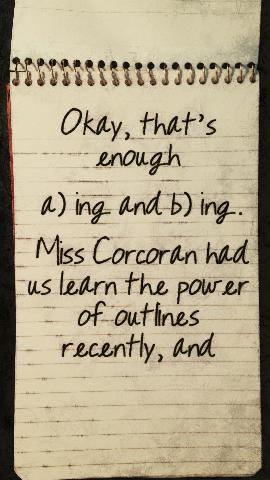 Okay, that's
enough
a) ing and b) ing.
Miss Corcoran had
us learn the power
of outlines
recently, and